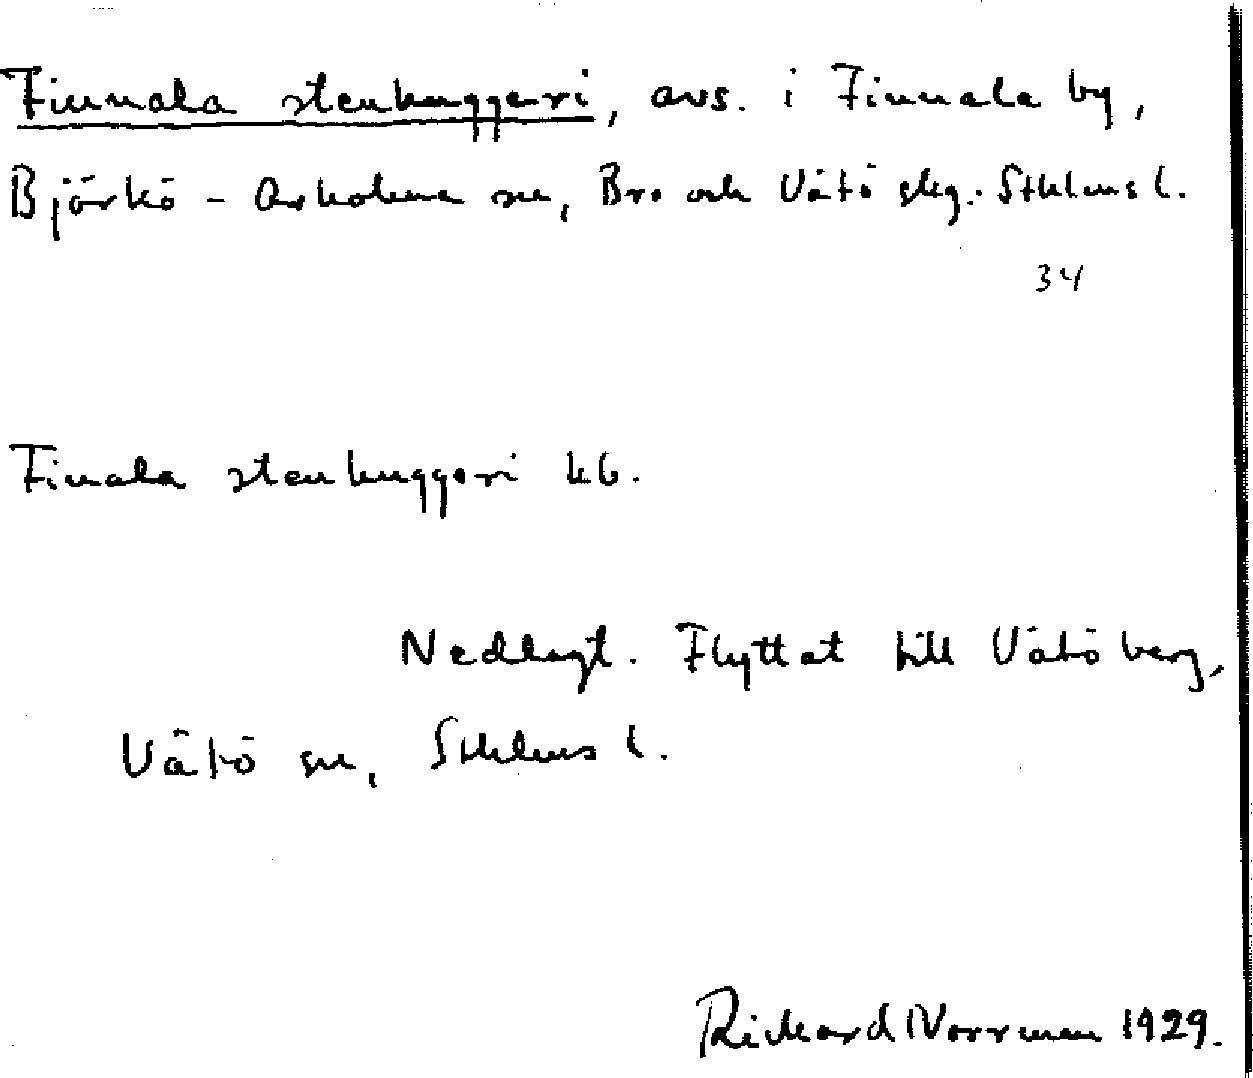 Finnala stenhuggeri, avs. i Finnala by,
Björkö - Arholma sn, Bro och Vätö skg. Sthlms l.
34
Finala stenhuggeri kb.
Nedlagt. Flyttat till Vätö berg,
Vätö sn, Sthlms l.
Rickard Norrman 1929.